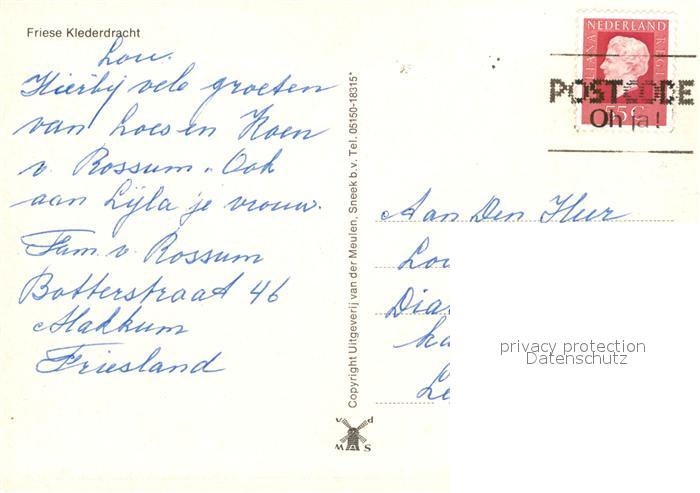 Friese Klederdracht
Lou.
Hierbij vele groeten
van Loes en Koen
v. Rossum. Ook
aan Lyla je vrouw.
Fam. v. Rossum
Botterstraat 46
Makkum
Friesland
Copyright Uitgeverij van der Meulen, Sneek b.v. Tel. 05150-18315*
v d
MAS
NEDERLAND
JULIANA REGINA
55c
POSTCODE
Oh ja!
Aan Den Heer
Lou
Dia
ka
Le
privacy protection
Datenschutz